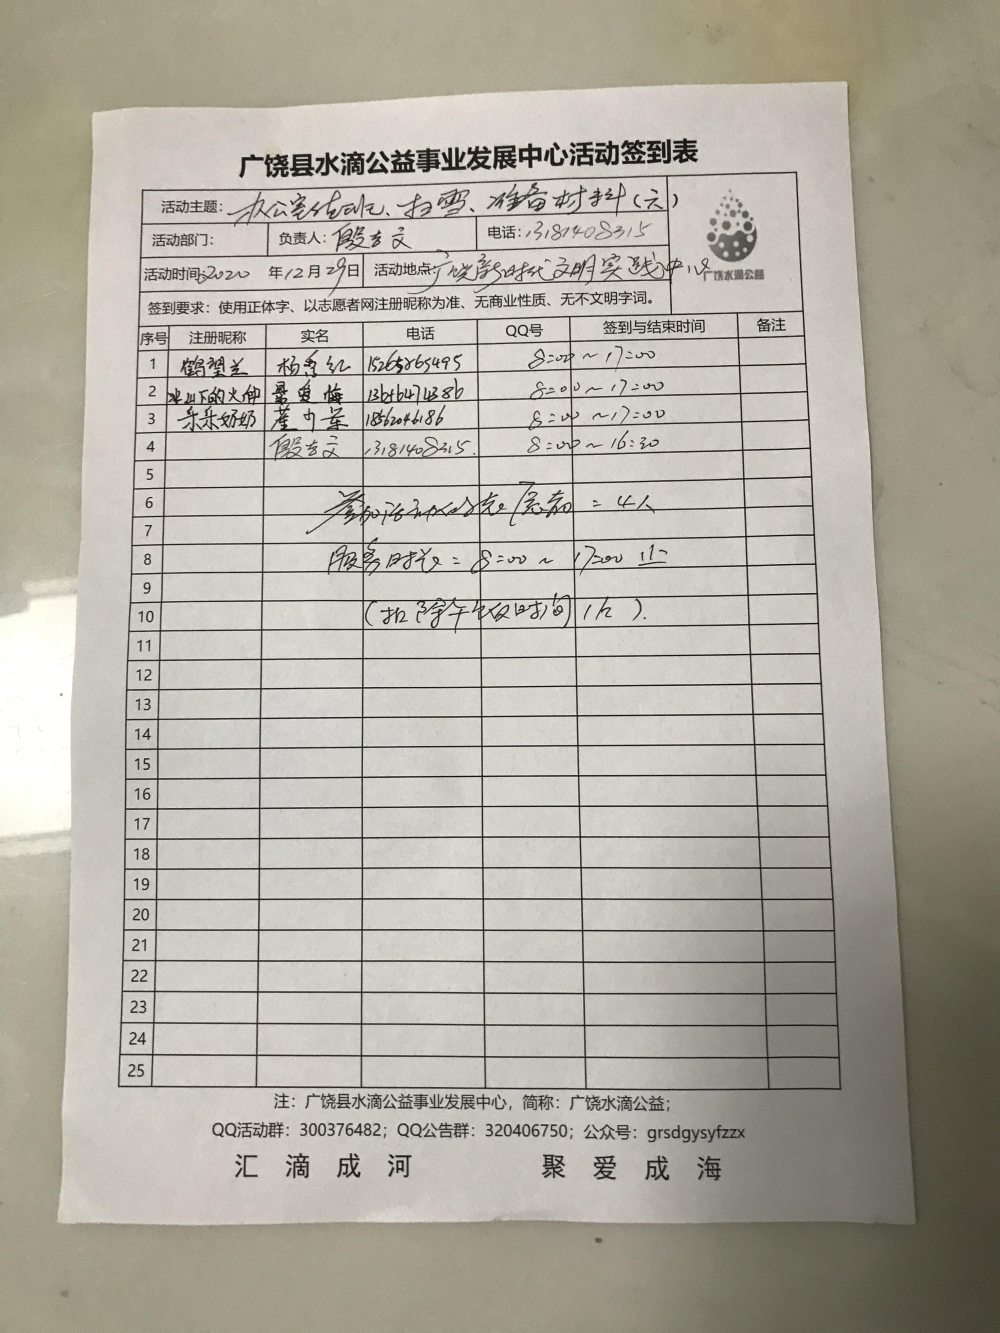 广饶县水滴公益事业发展中心活动签到表
活动主题: 办公室值班、扫雪、准备材料(六)
活动部门: 负责人: 殷志文 电话: 13181408315
活动时间: 2020 年12月29日 活动地点: 广饶新时代文明实践中心
广饶水滴公益
签到要求: 使用正体字、以志愿者网注册昵称为准、无商业性质、无不文明字词。
序号 注册昵称 实名 电话 QQ号 签到与结束时间 备注
1 鹤望兰 杨秀红 15265865495 8:00~17:00
2 冰山下的火种 爱梅 13646471386 8:00~17:00
3 乐乐奶奶 18562046186 8:00~17:00
4 殷志文 13181408315. 8:00~16:30
5
6 参加活动人 = 4人
7
8 服务时长 = 8:00~17:00止
9
10 (扣除午饭时间1h).
11
12
13
14
15
16
17
18
19
20
21
22
23
24
25
注: 广饶县水滴公益事业发展中心, 简称: 广饶水滴公益;
QQ活动群: 300376482; QQ公告群: 320406750; 公众号: grsdgysyfzzx
汇滴成河 聚爱成海